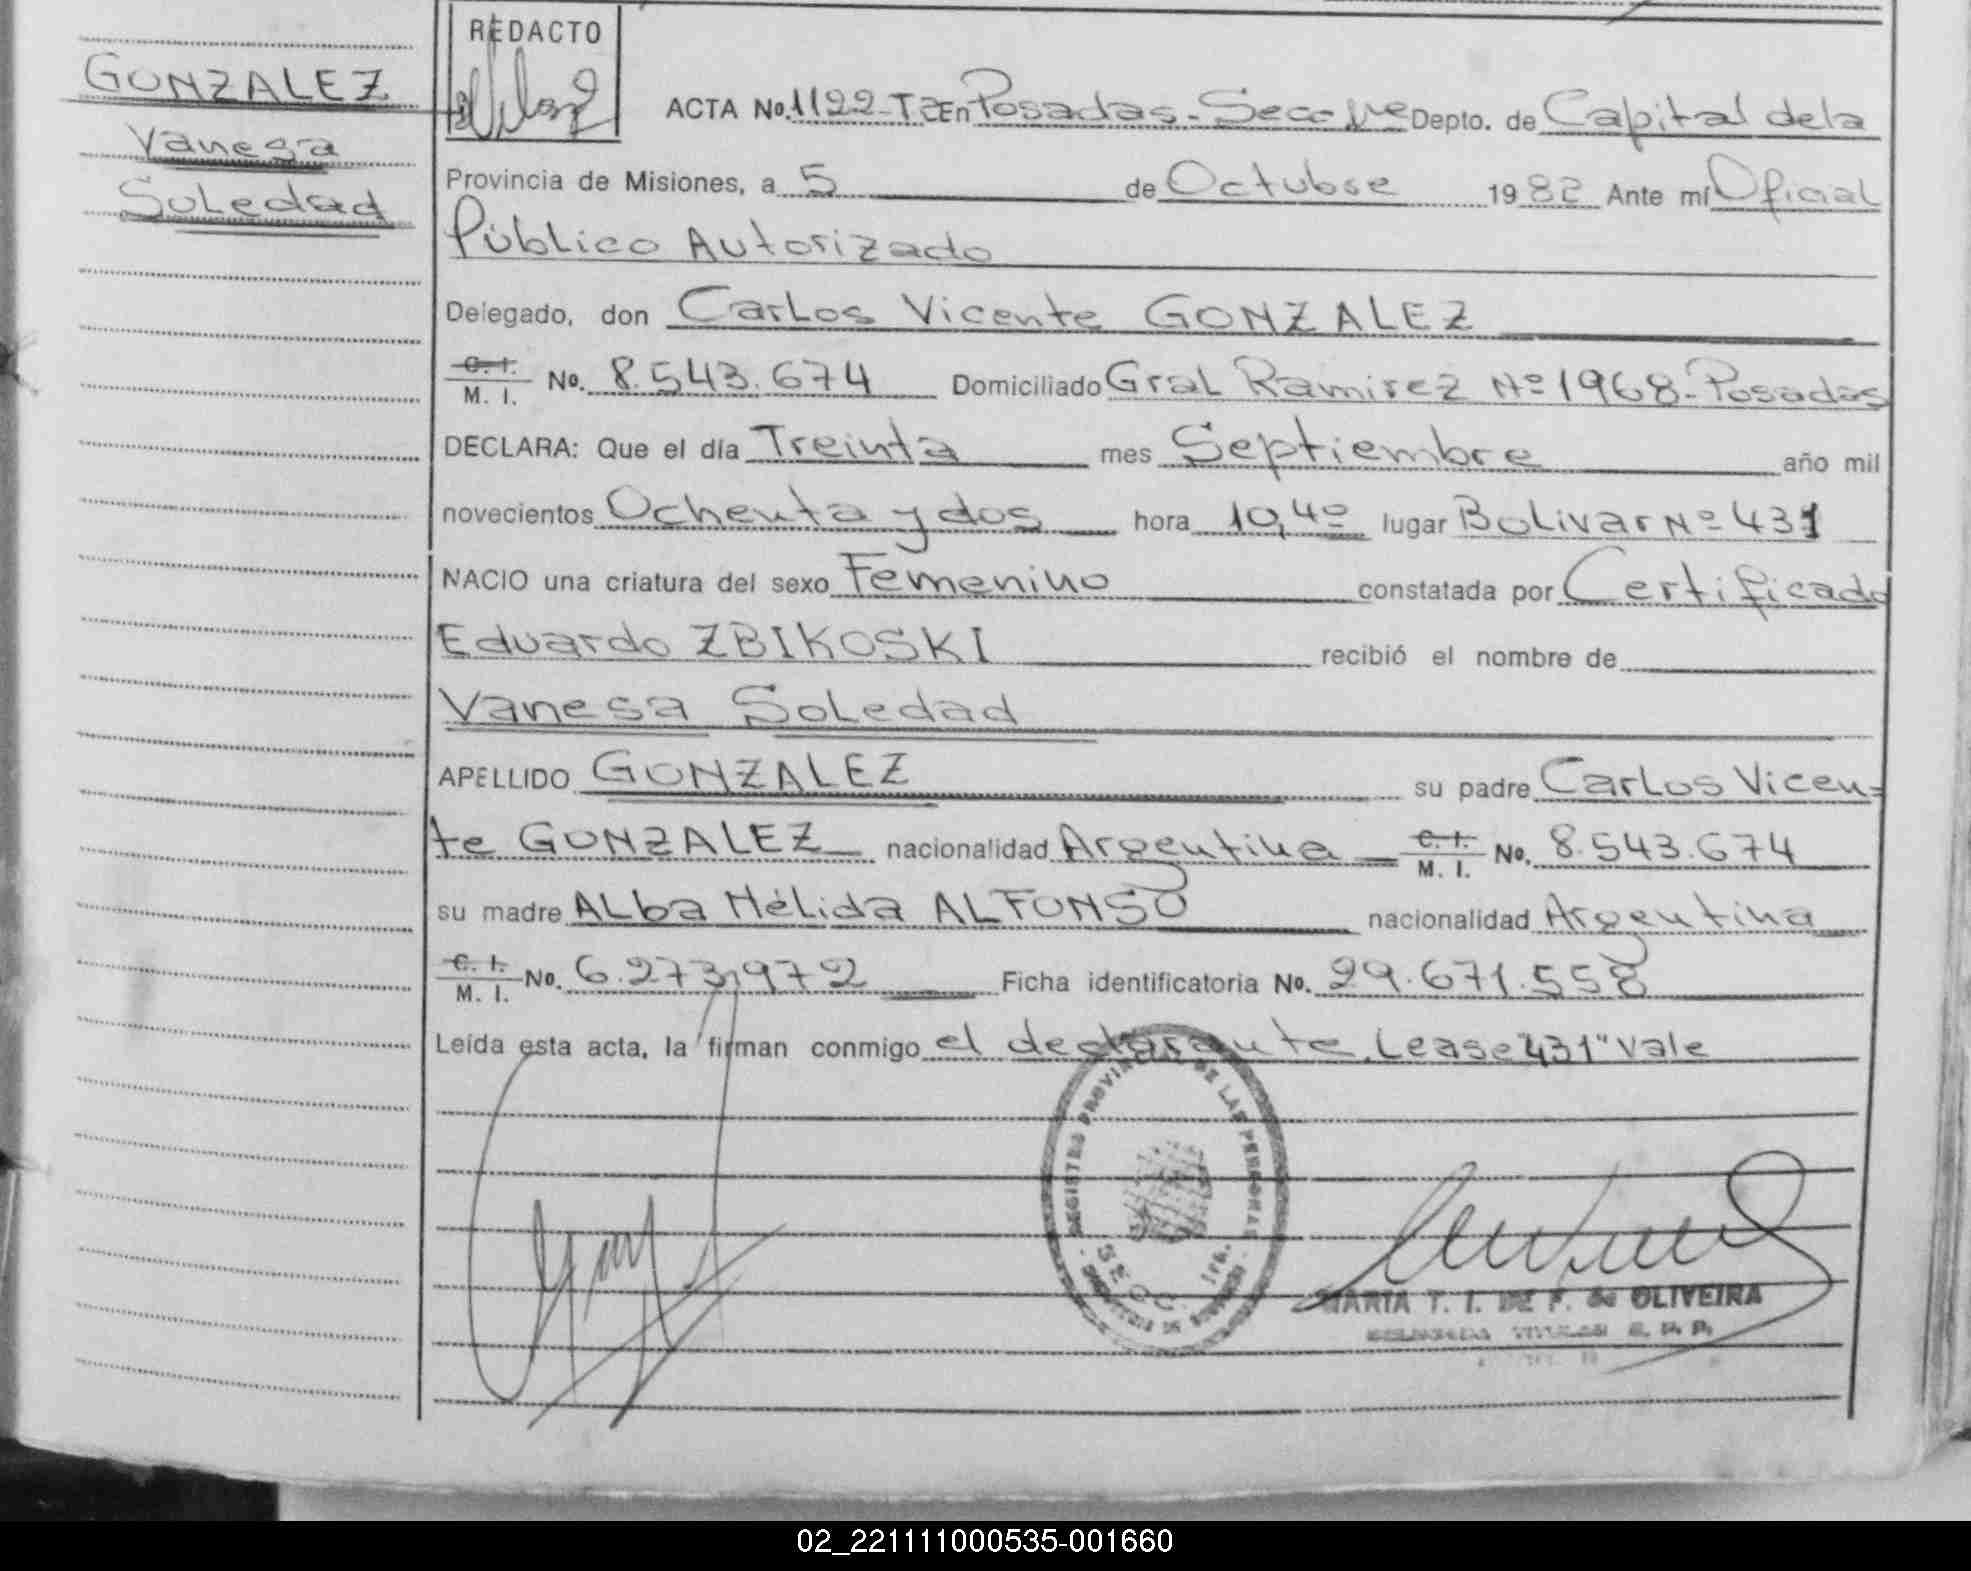 GONZALEZ
Vanesa
Soledad
REDACTO
ACTA No. 1122-T2 En Posadas - Secc Depto. de Capital de la
Provincia de Misiones, a 5 de Octubre 1982 Ante mí Oficial
Público Autorizado
Delegado, don Carlos Vicente GONZALEZ
C. I. M. I. No. 8.543.674 Domiciliado Gral Ramirez Nº 1968 - Posadas
DECLARA: Que el día Treinta mes Septiembre año mil
novecientos Ochenta y dos hora 10,40 lugar Bolivar Nº 431
NACIO una criatura del sexo Femenino constatada por Certificado
Eduardo ZBIKOSKI recibió el nombre de
Vanesa Soledad
APELLIDO GONZALEZ su padre Carlos Vicen=
te GONZALEZ nacionalidad Argentina C. I. M. I. No. 8.543.674
su madre ALba Nélida ALFONSO nacionalidad Argentina
C. I. M. I. No. 6.273.972 Ficha identificatoria No. 29.671.558
Leída esta acta, la firman conmigo el declarante. Lease "431" Vale
REGISTRO PROVINCIAL DE LAS PERSONAS
SECC.
MARIA T. I. DE F. de OLIVEIRA
02_221111000535-001660